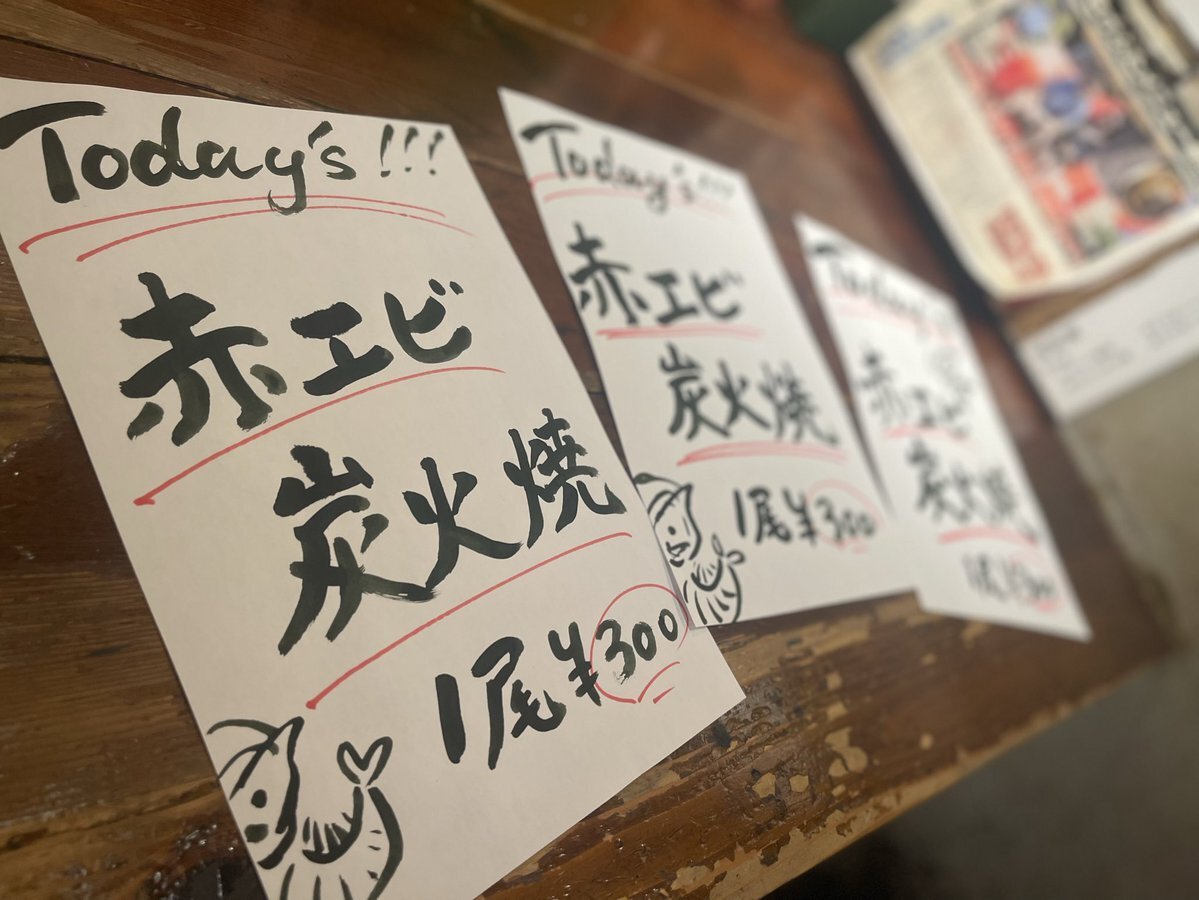 Today's !!!
赤エビ
炭火焼
1尾¥300
Today's !!!
赤エビ
炭火焼
1尾¥300
Today's
赤エビ
炭火焼